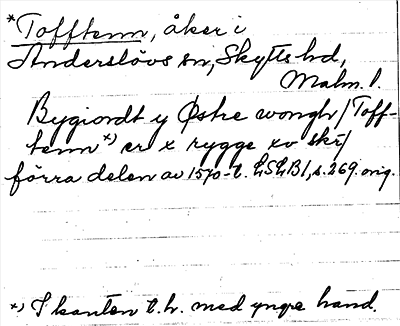 *Tofftenn, åker i
Anderslövs sn, Skytts hd,
Malm. l.
Bygiordt y Østre wongh / Toff-
tenn *) er x rygge xv skr/
förra delen av 1570-t. LSLB1, s. 269. orig.
*) I kanten t.h. med yngre hand.